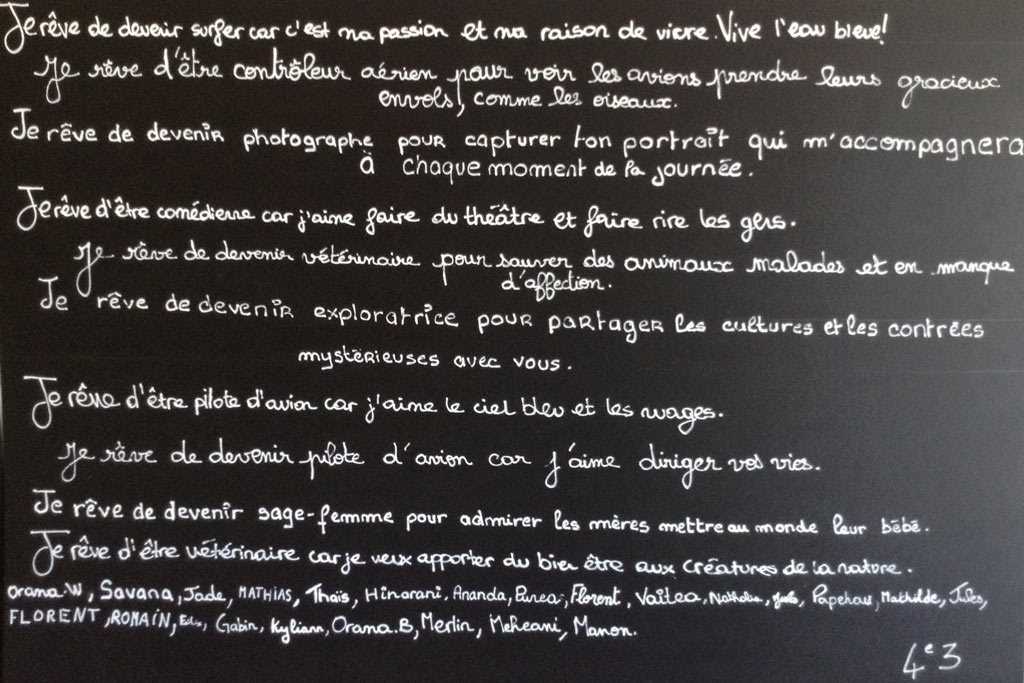 Je rêve de devenir surfer car c'est ma passion et ma raison de vivre. Vive l'eau bleue!
Je rêve d'être contrôleur aérien pour voir les avions prendre leurs gracieux
envols, comme les oiseaux.
Je rêve de devenir photographe pour capturer ton portrait qui m'accompagnera
à chaque moment de la journée.
Je rêve d'être comédienne car j'aime faire du théâtre et faire rire les gens.
Je rêve de devenir vétérinaire pour sauver des animaux malades et en manque
d'affection.
Je rêve de devenir exploratrice pour partager les cultures et les contrées
mystérieuses avec vous.
Je rêve d'être pilote d'avion car j'aime le ciel bleu et les nuages.
Je rêve de devenir pilote d'avion car j'aime diriger vos vies.
Je rêve de devenir sage-femme pour admirer les mères mettre au monde leur bébé.
Je rêve d'être vétérinaire car je veux apporter du bien être aux créatures de la nature.
Orama.W, Savana, Jade, MATHIAS, Thaïs, Hinarani, Ananda, Florent, Vaitea, Papehau, Mathilde, Jules,
FLORENT, ROMAIN, Gabin, Kyliann, Orama.B, Merlin, Meheani, Manon.
4e3